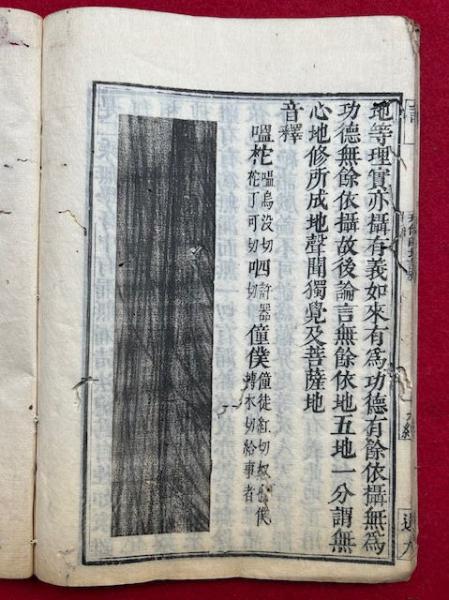 地等理實亦攝有義如來有爲功德有餘依攝無爲
功德無餘依攝故後論言無餘依地五地一分謂無
心地修所成地聲聞獨覺及菩薩地
音釋
嗢柁 嗢烏没切 柁丁可切 呬 許器切 僮僕 僮徒紅切 僕 切給事者